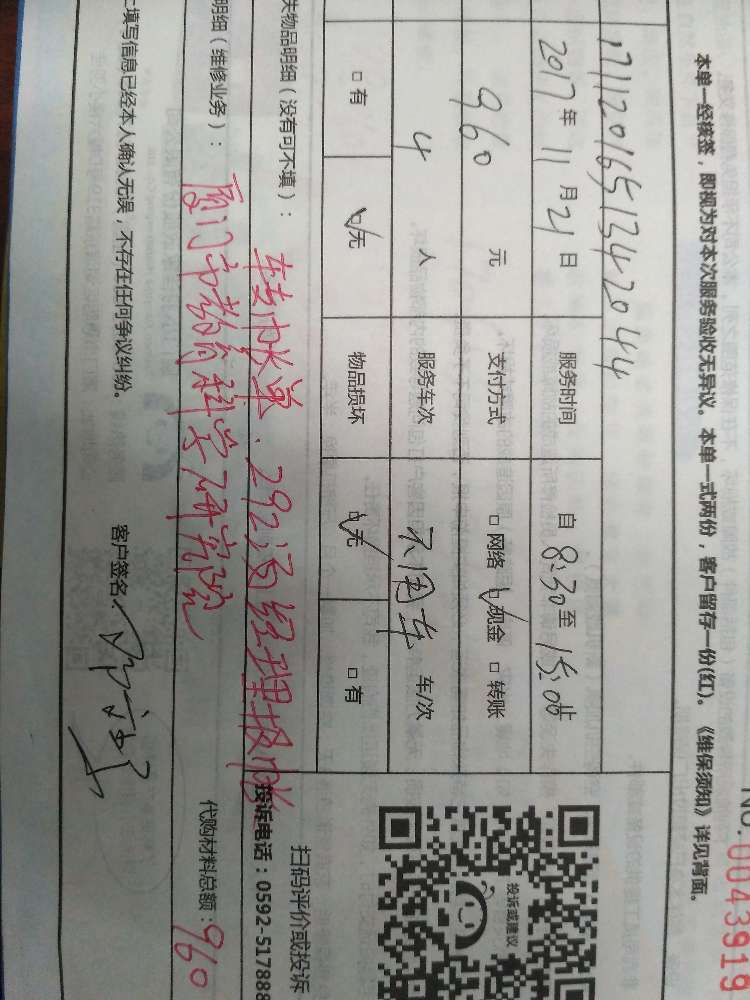 NO.0043919
本单一经核签，即视为对本次服务验收无异议。本单一式两份，客户留存一份(红)。《维保须知》详见背面。
1711201651342044
2017年11月21日 服务时间 自8:30至15:05
960元 支付方式 □网络 ☑现金 □转账
4人 服务车次 不用车 车/次
□有 ☑无 物品损坏 ☑无 □有
投诉或建议
扫码评价或投诉
投诉电话：0592-517888
失物品明细（没有可不填）： 转帐单、292汤经理报帐
明细（维修业务）： 厦门市教育科学研究院 代购材料总额：960
上填写信息已经本人确认无误，不存在任何争议纠纷。 客户签名：